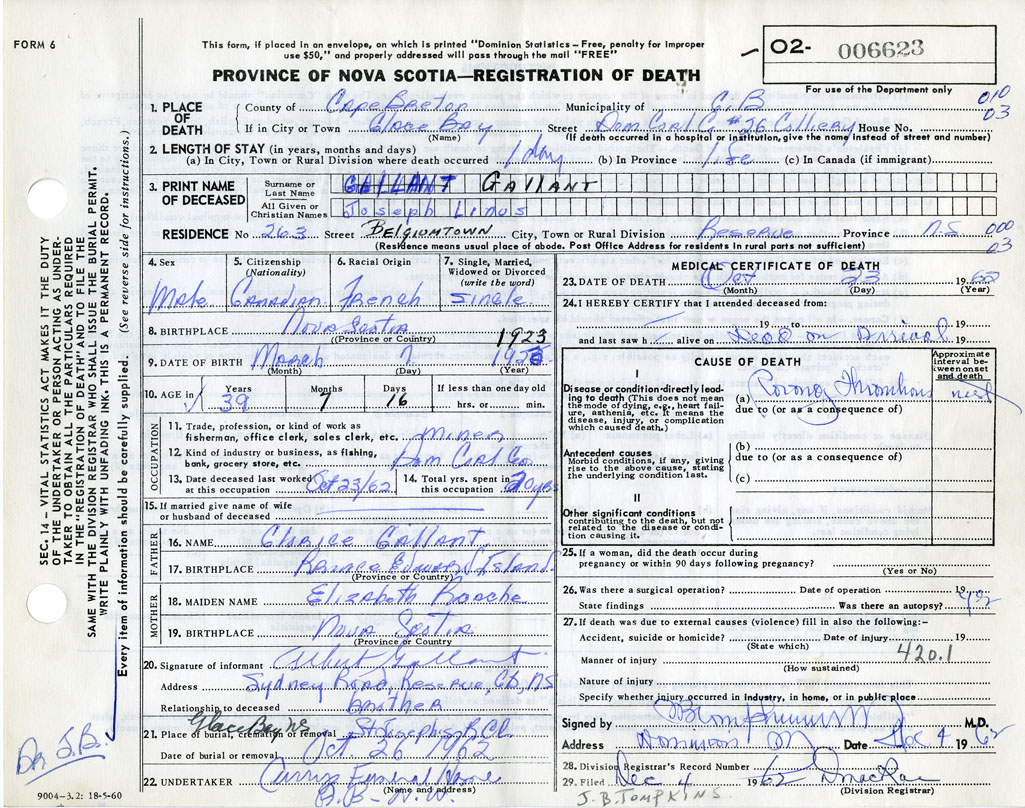 FORM 6
This form, if placed in an envelope, on which is printed "Dominion Statistics – Free, penalty for improper
use $50," and properly addressed will pass through the mail "FREE"
PROVINCE OF NOVA SCOTIA—REGISTRATION OF DEATH
O2- 006623
For use of the Department only
010
03
1. PLACE OF DEATH
County of Cape Breton Municipality of C.B
If in City or Town Glace Bay Street Dom Coal Co #26 Colliery House No.
(Name) (If death occurred in a hospital or institution, give the name instead of street and number)
2. LENGTH OF STAY (in years, months and days)
(a) In City, Town or Rural Division where death occurred 1 day (b) In Province Life (c) In Canada (if immigrant)
3. PRINT NAME OF DECEASED
Surname or Last Name GALLANT GALLANT
All Given or Christian Names Joseph Linus
RESIDENCE No 263 Street BELGIUMTOWN City, Town or Rural Division Reserve Province N.S 000
03
(Residence means usual place of abode. Post Office Address for residents in rural parts not sufficient)
4. Sex
Male
5. Citizenship (Nationality)
Canadian
6. Racial Origin
French
7. Single, Married, Widowed or Divorced (write the word)
Single
8. BIRTHPLACE Nova Scotia
(Province or Country)
1923
9. DATE OF BIRTH March 7 192
(Month) (Day) (Year)
10. AGE in Years 39 Months 7 Days 16 If less than one day old hrs. or min.
OCCUPATION
11. Trade, profession, or kind of work as
fisherman, office clerk, sales clerk, etc. miner
12. Kind of industry or business, as fishing,
bank, grocery store, etc. Dom Coal Co.
13. Date deceased last worked
at this occupation Oct 23/62
14. Total yrs. spent in
this occupation 20 yrs
15. If married give name of wife
or husband of deceased
FATHER
16. NAME Gallant
17. BIRTHPLACE Prince Edward Island
(Province or Country)
MOTHER
18. MAIDEN NAME Elizabeth Roache
19. BIRTHPLACE Nova Scotia
(Province or Country)
20. Signature of informant Albert Gallant
Address Sydney Road, Reserve, CB, NS
Relationship to deceased brother
Glace Bay NS
21. Place of burial, cremation or removal St Josephs R.C.
Date of burial or removal Oct 26 1962
22. UNDERTAKER Currys Funeral Home
(Name and address)
G.B - N.W.
9004-3.2: 18-5-60
MEDICAL CERTIFICATE OF DEATH
23. DATE OF DEATH Oct 23 1962
(Month) (Day) (Year)
24. I HEREBY CERTIFY that I attended deceased from:
19 to
and last saw h alive on Dead on Arrival 19
CAUSE OF DEATH
Approximate interval between onset and death
I
Disease or condition directly leading to death (This does not mean the mode of dying, e.g., heart failure, asthenia, etc. It means the disease, injury, or complication which caused death.)
(a) Coronary Thrombosis
due to (or as a consequence of)
Antecedent causes
Morbid conditions, if any, giving rise to the above cause, stating the underlying condition last.
(b)
due to (or as a consequence of)
(c)
II
Other significant conditions
contributing to the death, but not related to the disease or condition causing it.
25. If a woman, did the death occur during
pregnancy or within 90 days following pregnancy?
(Yes or No)
26. Was there a surgical operation? Date of operation 19
State findings Was there an autopsy? yes
27. If death was due to external causes (violence) fill in also the following:-
Accident, suicide or homicide? Date of injury 19
(State which)
420.1
Manner of injury
(How sustained)
Nature of injury
Specify whether injury occurred in industry, in home, or in public place
Signed by M.D.
Address Date Dec 4 19 62
28. Division Registrar's Record Number
29. Filed Dec 4 1962
(Division Registrar)
J.B. TOMPKINS
SEC. 14 – VITAL STATISTICS ACT MAKES IT THE DUTY
OF THE UNDERTAKER OR PERSON ACTING AS UNDER-
TAKER TO OBTAIN ALL THE PARTICULARS REQUIRED
IN THE "REGISTRATION OF DEATH" AND TO FILE THE
SAME WITH THE DIVISION REGISTRAR WHO SHALL ISSUE THE BURIAL PERMIT.
WRITE PLAINLY WITH UNFADING INK. THIS IS A PERMANENT RECORD.
Every item of information should be carefully supplied. (See reverse side for instructions.)
Dr J.B.